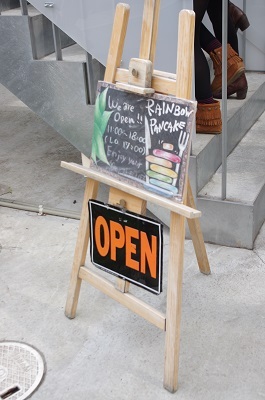 We are
Open!!
11:00~18:00
(L.O 17:00)
Enjoy
RAINBOW
PANCAKE
OPEN